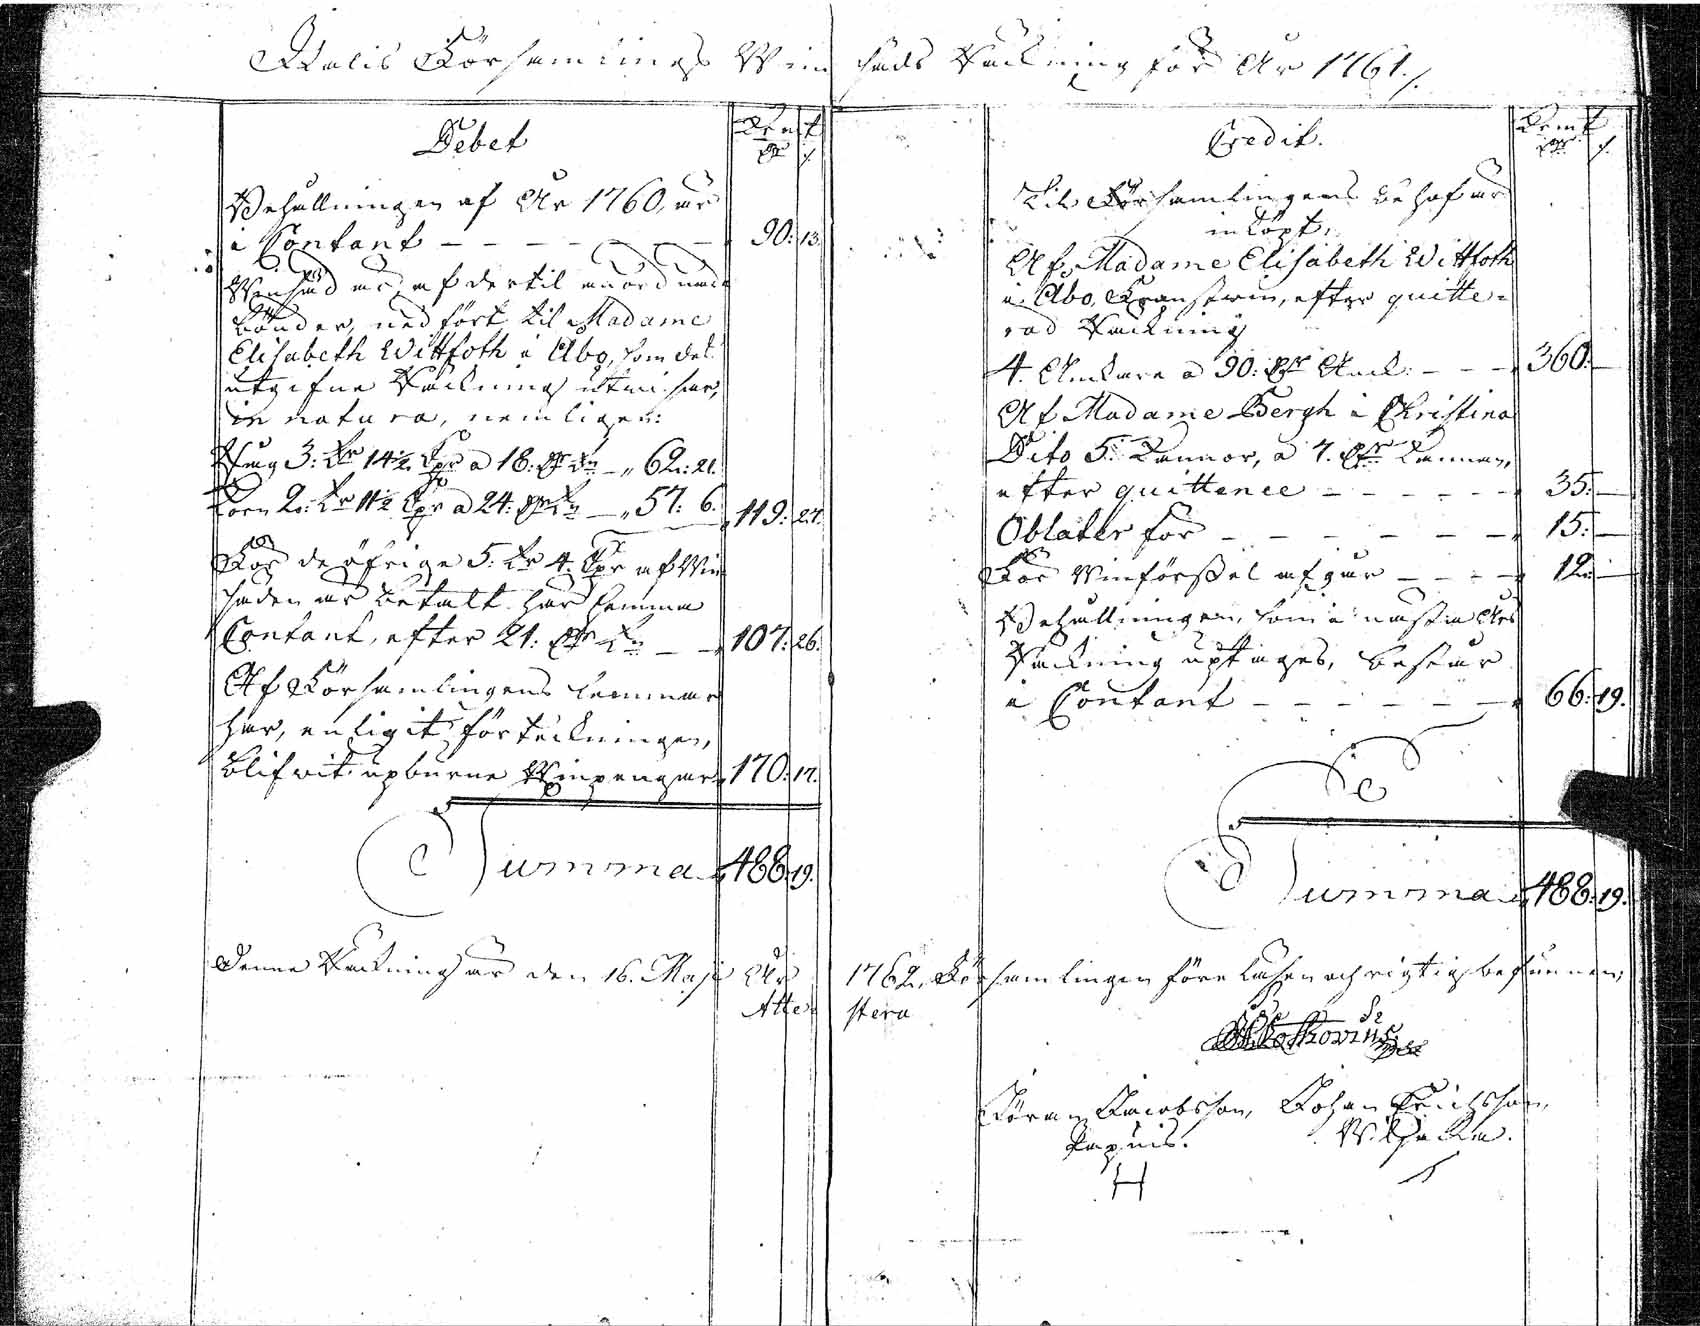 Församlings Winsäds Räkning för År 1761.
Debet
Kopmt
Behållningen af År 1760, är
i Contant – – – – – – 90: 13.
Winsäd är, af dertil anordnade
bönder, nedfört til Madame
Elisabeth Wittfoth i Åbo, som des
utgifne Räkning utwisar,
in natura, nemligen:
Råg 3: Tr 14½ Kpr a 18: Dr Tn – „ 62: 21.
Korn 2: Tr 11½ Kpr a 24: Dr Tn – „ 57: 6. 119: 27.
För de öfrige 5: Tr 4: Kpr af Win
säden är betalt här hemma
Contant, efter 21: Dr Tn – – 107: 26.
Af Församlingens lemmar
har, enligit förteckningen,
blifwit upburne Winpengar 170: 17.
Summa 488: 19.
Credit.
Kopmt
Til Församlingens behof är
inköpt,
Af Madame Elisabeth Wittfoth
i Åbo, Franswin, efter quitte-
rad Räkning
4. Ankare a 90: Dr Ank: – – – 360: –
Af Madame Bergh i Christina
Dito 5. Kannor, a 7. Dr Kannan,
efter quittence – – – – – 35: –
Oblater för – – – – – – 15: –
För Winförßel afgår – – – – 12: –
Behållningen, som i nästa Års
Räkning uptages, består
i Contant – – – – – – 66: 19.
Summa 488: 19.
Denne Räkning är den 16. Maji År 1762, Församlingen föreläsen och rigtig befunnen,
Attestera
Jöran Jacobsson, Johan Erichsson,